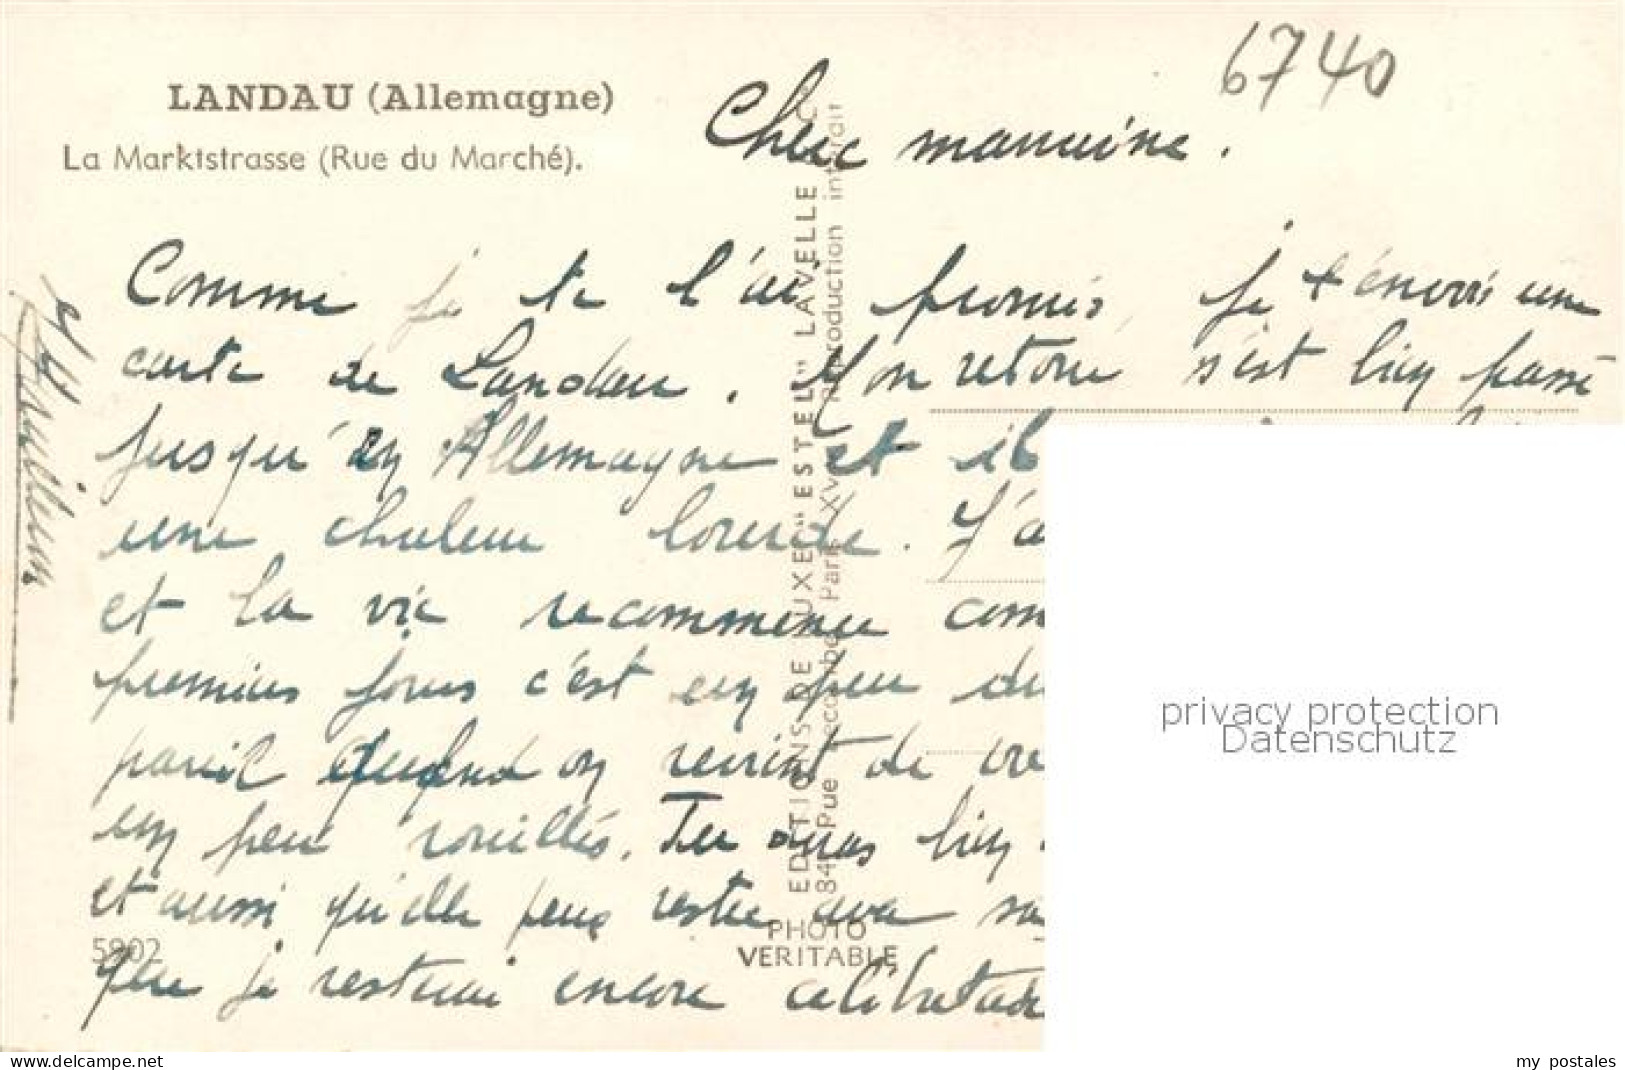 6740
LANDAU (Allemagne)
La Marktstrasse (Rue du Marché).
Chère marraine.
Comme je te l'ai promis, je t'envoi une
carte de Landau. Mon retour s'est bien passé
jusqu'en Allemagne et il
une chaleur lourde. J'a
et la vie recommence com
premiers jours c'est un peu du
pareil quand on revient de
un peu rouillés. Tu bien
et aussi qu'elle peux rester avec sa
que je resterai encore célibataire
EDITIONS DE LUXE "ESTEL" LAVELLE
84, Rue Lecourbe, Paris XV Reproduction interdit
PHOTO
VERITABLE
5902
privacy protection
Datenschutz
my postales